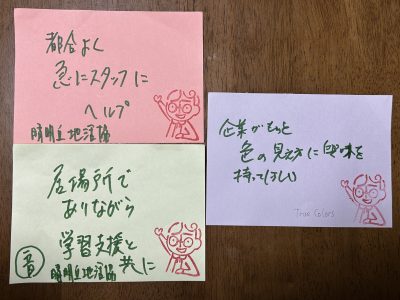 都合よく
急にスタッフに
ヘルプ
晴明丘地活協
居場所で
ありながら
学習支援と
共に
音
晴明丘地活協
企業がもっと
色の見え方に興味を
持ってほしい
True Colors